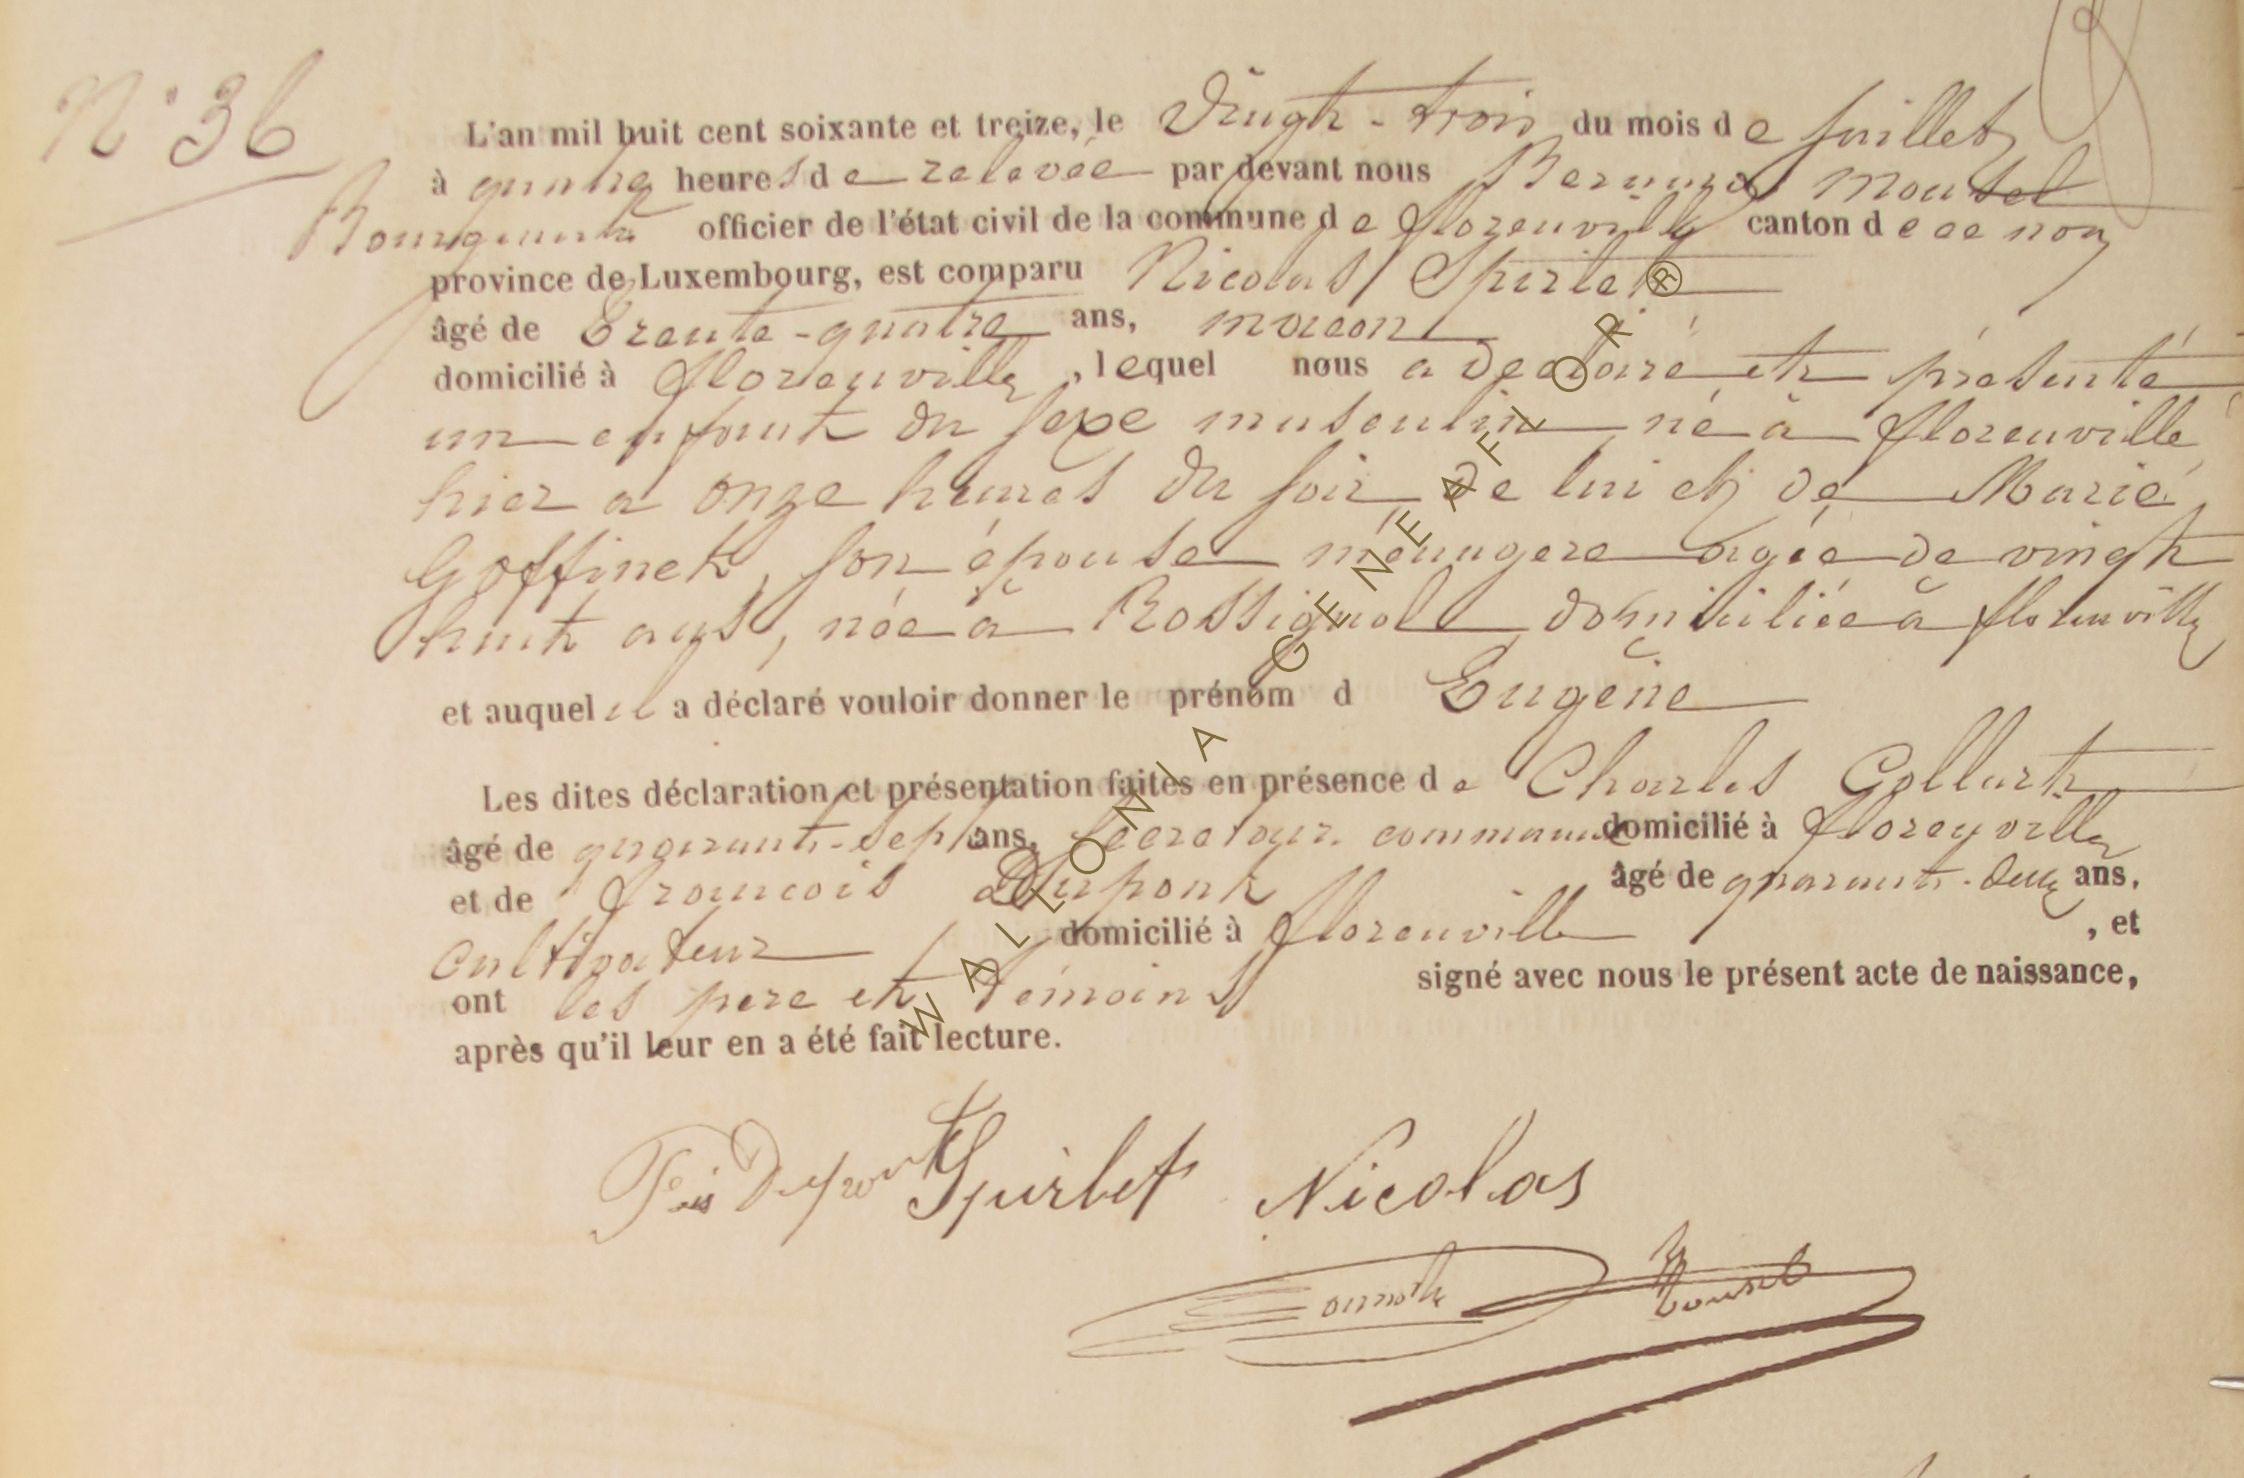 N° 36
L'an mil huit cent soixante et treize, le Vingt-trois du mois de Juillet
à quatre heures de relevée par devant nous Bernard Mousel
Bourgmestre officier de l'état civil de la commune de florenville canton de ce nom
province de Luxembourg, est comparu Nicolas Spirlet
âgé de Trente-quatre ans, macon
domicilié à florenville, lequel nous a déclaré et présenté
un enfant du sexe masculin né à florenville
hier a onze heures du soir de lui et de Marie
Goffinet, son épouse ménagere agée de vingt
huit ans, née à Rossignol domiciliée à florenville
et auquel il a déclaré vouloir donner le prénom d Eugène
Les dites déclaration et présentation faites en présence de Charles
âgé de ans, Secretaire communal domicilié à florenville
et de francois Dupont âgé de quarante-deux ans,
Cultivateur domicilié à florenville, et
ont les pere et témoins signé avec nous le présent acte de naissance,
après qu'il leur en a été fait lecture.
Fçois Dupont Spirlet Nicolas
Mousel
WALLONIA GENEAFLOR ®